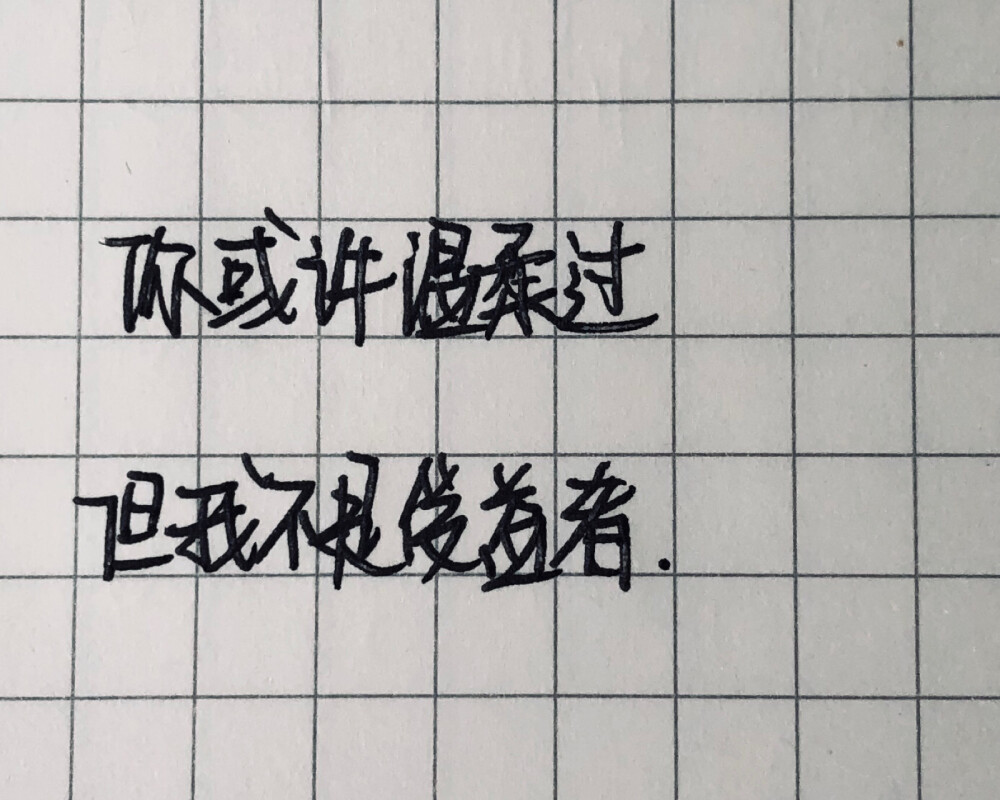 你或许温柔过
但我不是受益者.